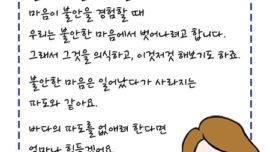 마음이 불안을 경험할 때
우리는 불안한 마음에서 벗어나려고 합니다.
그래서 그것을 의식하고, 이것저것 해보기도 하죠.
불안한 마음은 일어났다가 사라지는
파도와 같아요.
바다의 파도를 없애려 한다면
얼마나 힘들겠어요